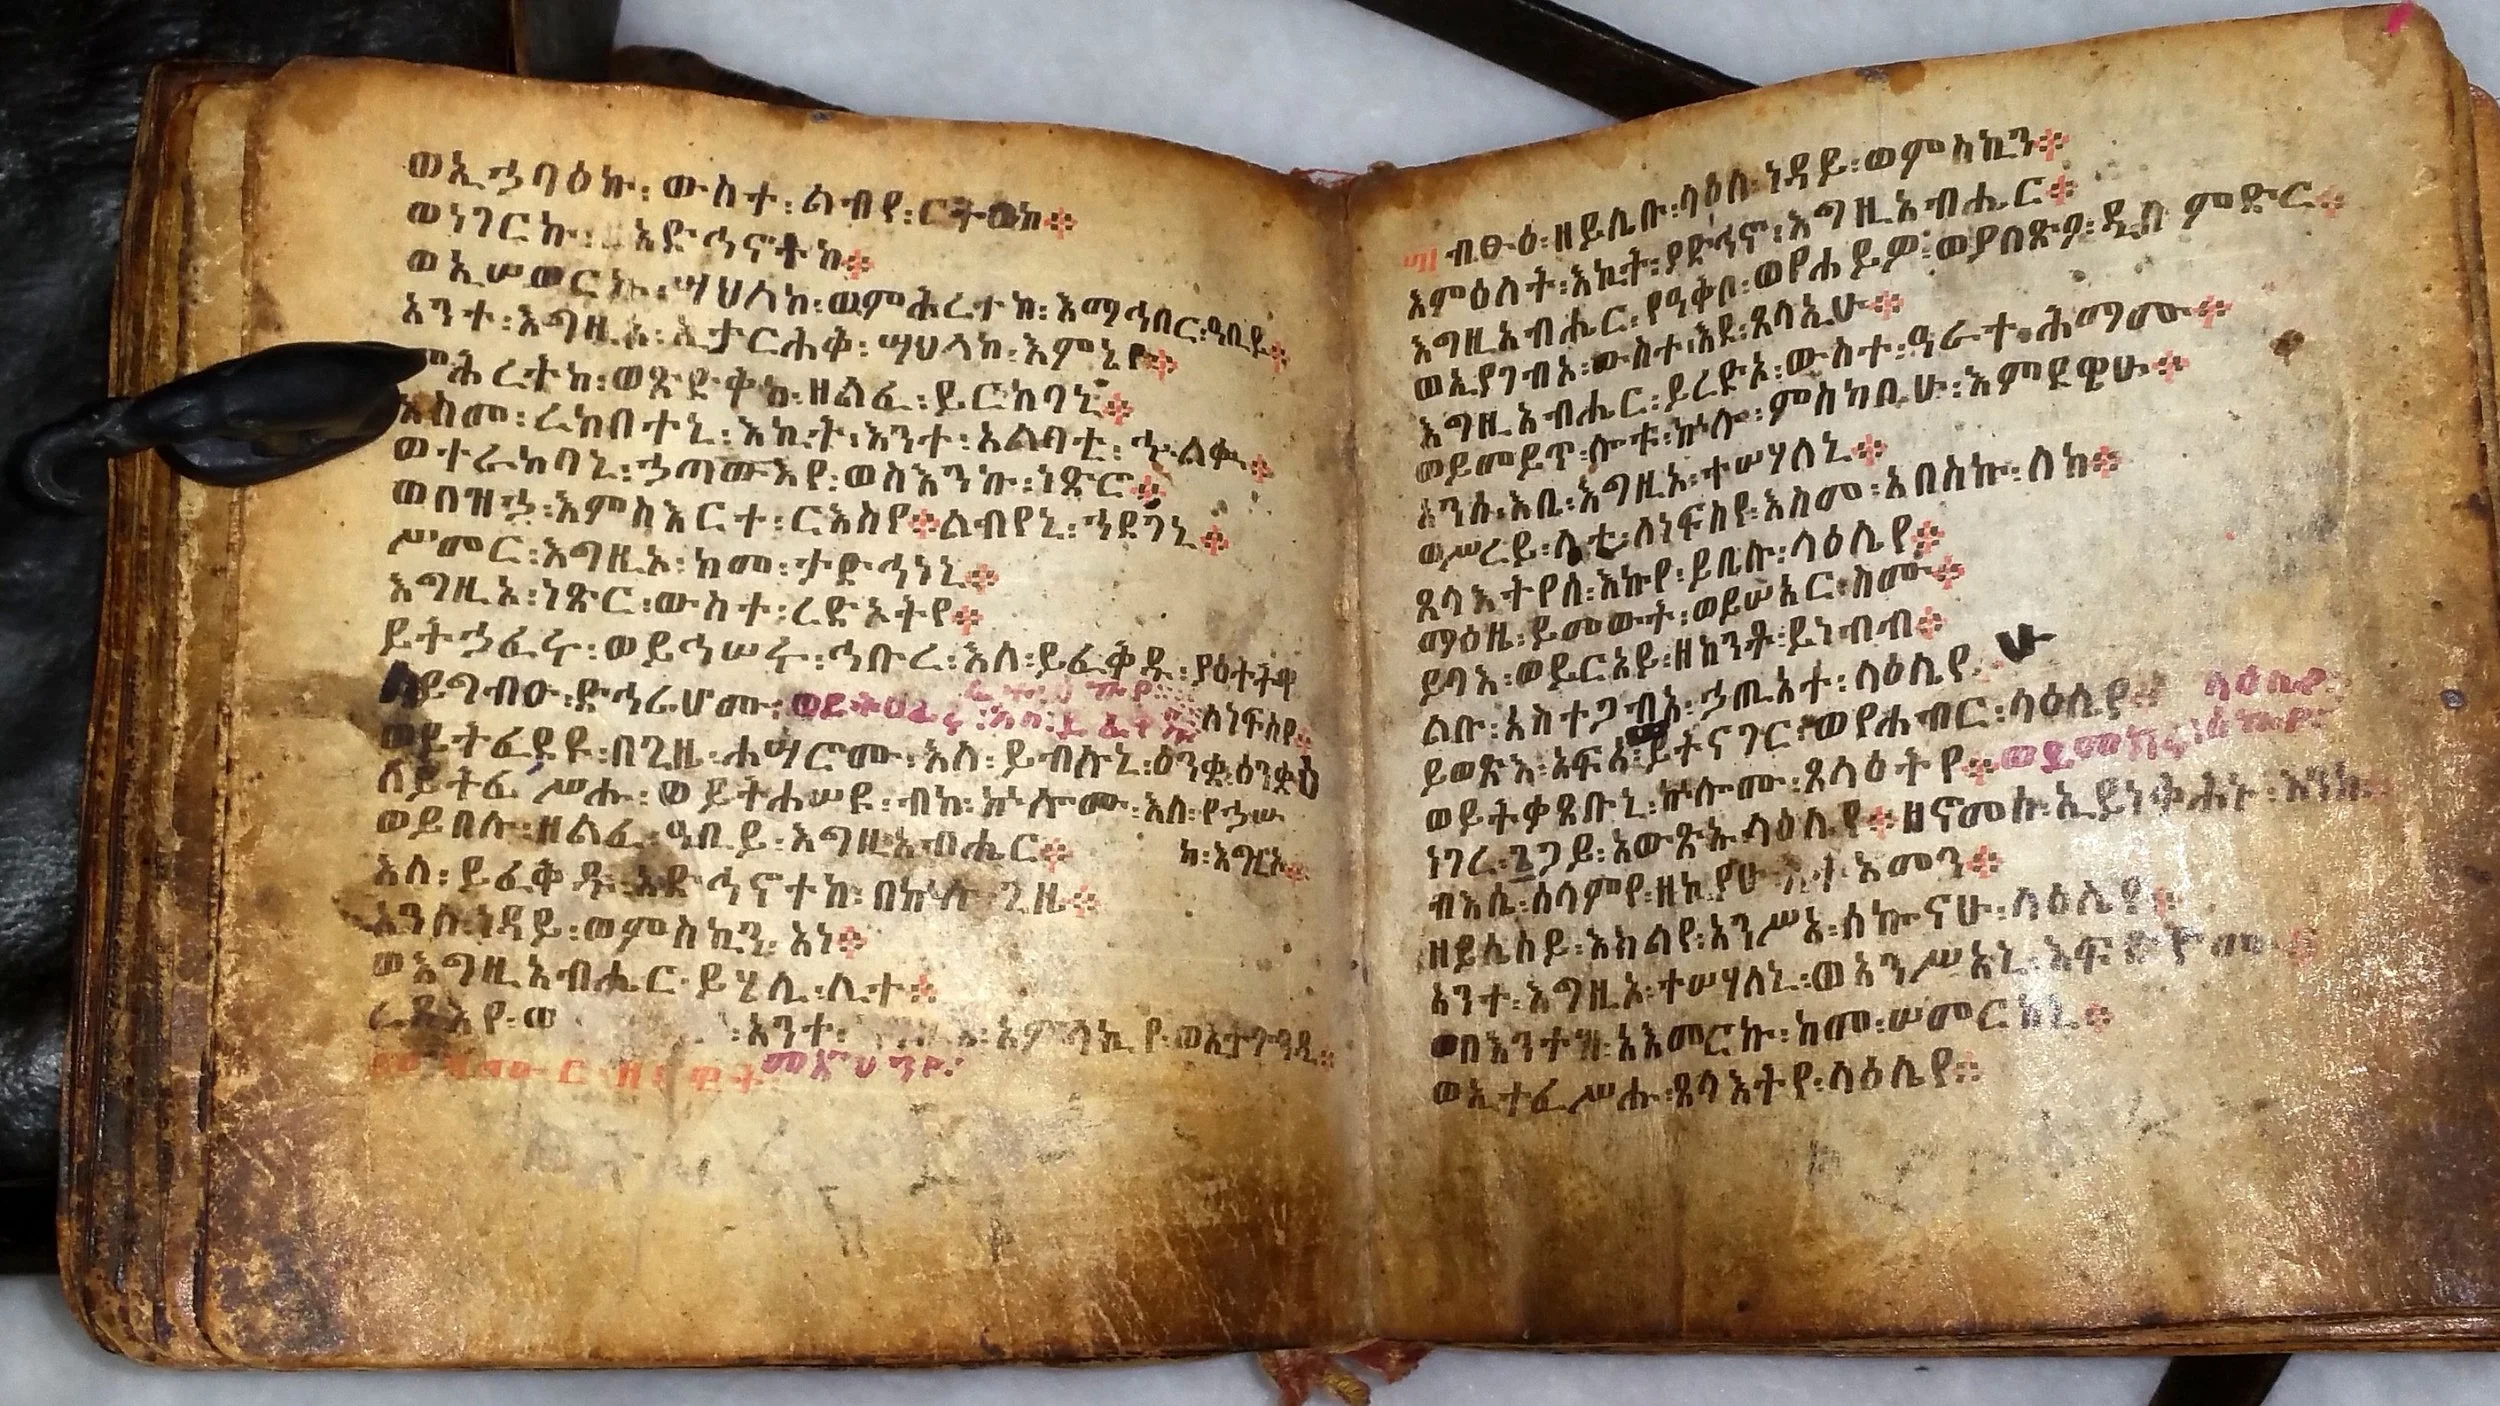 ወኢኃባዕኩ፡ ውስተ፡ ልብየ፡ ርትዐከ፨
ወነገርኩ፡ አድኅኖትከ፨
ወኢሠወርኩ፡ ሣህለከ፡ ወምሕረተከ፡ እማኅበር፡ ዓቢይ፨
አንተ፡ እግዚኦ፡ ኢታርሕቅ፡ ሣህላከ፡ እምኔየ፨
ምሕረትከ፡ ወጽድቅከ፡ ዘልፈ፡ ይርከባኒ፨
እስመ፡ ረከበተኒ፡ እኪት፡ እንተ፡ አልባቲ፡ ኍልቈ፨
ወተራከባኒ፡ ኃጣውእየ፡ ወስእንኩ፡ ነጽሮ፨
ወበዝኃ፡ እምስእርተ፡ ርእስየ፨ ልብየኒ፡ ኀደገኒ፨
ሥመር፡ እግዚኦ፡ ከመ፡ ታድኅነኒ፨
እግዚኦ፡ ነጽር፡ ውስተ፡ ረድኦትየ፨
ይትኃፈሩ፡ ወይኅሠሩ፡ ኅቡረ፡ እለ፡ ይፈቅዱ፡ ያዕትትዋ
ለነፍስየ፨
ይግብዑ፡ ድኅሬሆሙ፡
ወይትፈደዩ፡ በጊዜ፡ ሐሣሮሙ፡ እለ፡ ይብሉኒ፡ ዕንቋዕ፡ ዕንቋዕ
ለይትፈሥሑ፡ ወይትሐሠዩ፡ ብከ፡ ኵሎሙ፡ እለ፡ የኃሡ
ከ፡ እግዚኦ፨
ወይበሉ፡ ዘልፈ፡ ዓቢይ፡ እግዚአብሔር፨
እለ፡ ይፈቅዱ፡ አድኅኖተከ፡ በኵሉ፡ ጊዜ፨
አንሰ፡ ነዳይ፡ ወምስኪን፡ አነ፨
ወእግዚአብሔር፡ ይሄሊ፡ ሊተ፨
ረዳእየ፡ አንተ፡ አምላኪየ፡ ወኢትጐንዲ፨
መዝሙር፡ ዘዳዊት፡
ብፁዕ፡ ዘይሌቡ፡ ላዕለ፡ ነዳይ፡ ወምስኪን፨
እምዕለት፡ እኪት፡ ያድኅኖ፡ እግዚአብሔር፨
እግዚአብሔር፡ የዓቅቦ፡ ወየሐይዎ፡ ወያበጽዖ፡ ዲበ ምድር፨
ወኢያገብኦ፡ ውስተ፡ እደ፡ ጸላኢሁ፨
እግዚአብሔር፡ ይረድኦ፡ ውስተ፡ ዓራተ፡ ሕማሙ፨
ወይመይጥ፡ ሎቱ፡ ኵሎ፡ ምስካቢሁ፡ እምደዌሁ፨
አንሰ፡ እቤ፡ እግዚኦ፡ ተሣሃለኒ፨
ወሥረይ፡ ላቲ፡ ለነፍስየ፡ እስመ፡ አበስኩ፡ ለከ፨
ጸላእትየሰ፡ እኩየ፡ ይቤሉ፡ ላዕሌየ፨
ማዕዜ፡ ይመውት፡ ወይሠአር፡ ስሙ፨
ይባእ፡ ወይርአይ፡ ዘከንቶ፡ ይነብብ፨
ልቡ፡ አስተጋብአ፡ ኃጢአተ፡ ላዕሌየ
ይወጽእ፡ አፍአ፡ ይትናገር፡ ወየሐብር፡ ላዕሌየ፨
ወይትቃጸቡኒ፡ ኵሎሙ፡ ጸላዕትየ፨
ነገረ፡ ጌጋይ፡ አውጽኡ፡ ላዕሌየ፨ ዘኖመኩ፡ ኢይነቅህኑ፡ እንከ፨
ብእሴ፡ ሰላምየ፡ ዘኪያሁ እትአመን፨
ዘይሴሰይ፡ እክልየ፡ አንሥአ፡ ሰኰናሁ፡ ላዕሌየ፨
አንተ፡ እግዚኦ፡ ተሣሃለኒ፡ ወአንሥአኒ፡ እፍድዮሙ፨
ወበእንተዝ፡ አእመርኩ፡ ከመ፡ ሠመርከኒ፨
ወኢተፈሥሑ፡ ጸላእትየ፡ ላዕሌየ፨